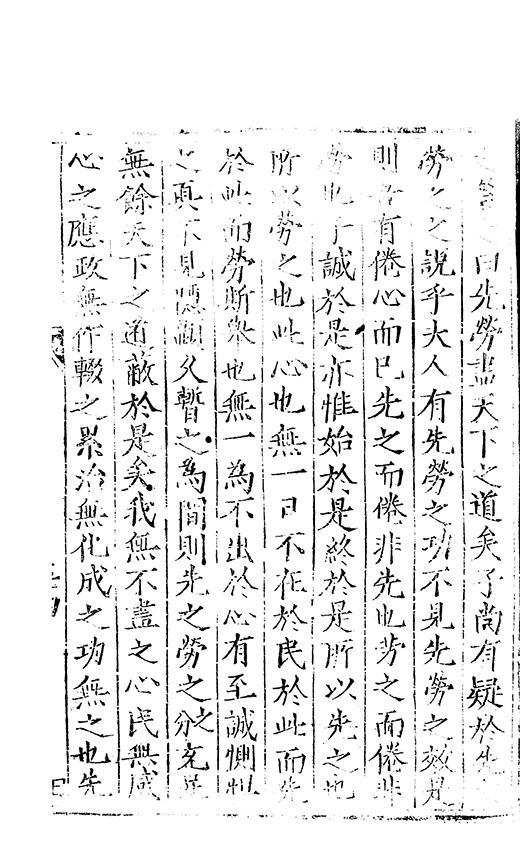 曰先勞盡天下之道矣子尚有疑於先
勞之之說乎夫人有先勞之功不見先勞之效是
則有倦心而已先之而倦非先也勞之而倦非
勞也子誠於是亦惟始於是終於是所以先之也
所以勞之也此心也無一日不在於民於此而先
於此而勞斯眾也無一為不出於心有至誠惻怛
之真不見隱顯久暫之為間則先之勞之之分充足
無餘天下之道蔽於是矣我無不盡之心民無感
心之應政無作輟之累治無化成之功無之也先